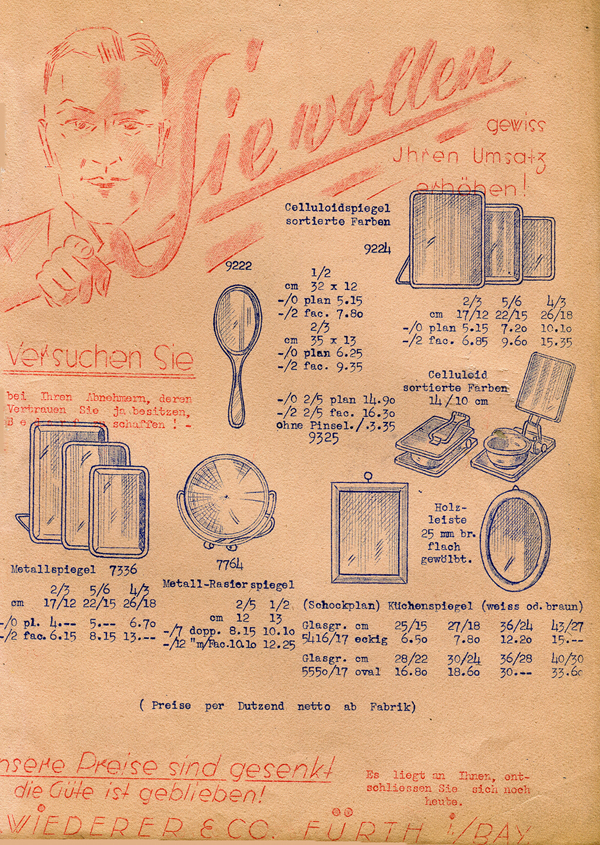 Sie wollen
gewiss
Jhren Umsatz
erhöhen!
Celluloidspiegel
sortierte Farben
9224
2/3 5/6 4/3
cm 17/12 22/15 26/18
-/0 plan 5.15 7.20 10.10
-/2 fac. 6.85 9.60 15.35
9222
1/2
cm 32 x 12
-/0 plan 5.15
-/2 fac. 7.80
2/3
cm 35 x 13
-/0 plan 6.25
-/2 fac. 9.35
Versuchen Sie
bei Ihren Abnehmern, deren
Vertrauen Sie ja besitzen,
B e d a r f zu schaffen ! -
Celluloid
sortierte Farben
14/10 cm
-/0 2/5 plan 14.90
-/2 2/5 fac. 16.30
ohne Pinsel./.3.35
9325
Metallspiegel 7336
2/3 5/6 4/3
cm 17/12 22/15 26/18
-/0 pl. 4.-- 5.-- 6.70
-/2 fac. 6.15 8.15 13.--
7764
Metall-Rasierspiegel
2/5 1/2
cm 12 13
-/7 dopp. 8.15 10.10
-/12 "m/Fac.10.10 12.25
Holz-
leiste
25 mm br.
flach
gewölbt.
(Schockplan) Küchenspiegel (weiss od. braun)
Glasgr. cm 25/15 27/18 36/24 43/27
5416/17 eckig 6.50 7.80 12.20 15.--
Glasgr. cm 28/22 30/24 36/28 40/30
5550/17 oval 16.80 18.60 30.-- 33.60
( Preise per Dutzend netto ab Fabrik)
nsere Preise sind gesenkt
die Güte ist geblieben!
Es liegt an Ihnen, ent-
schliessen Sie sich noch
heute.
WIEDERER & CO. FÜRTH i/BAY.